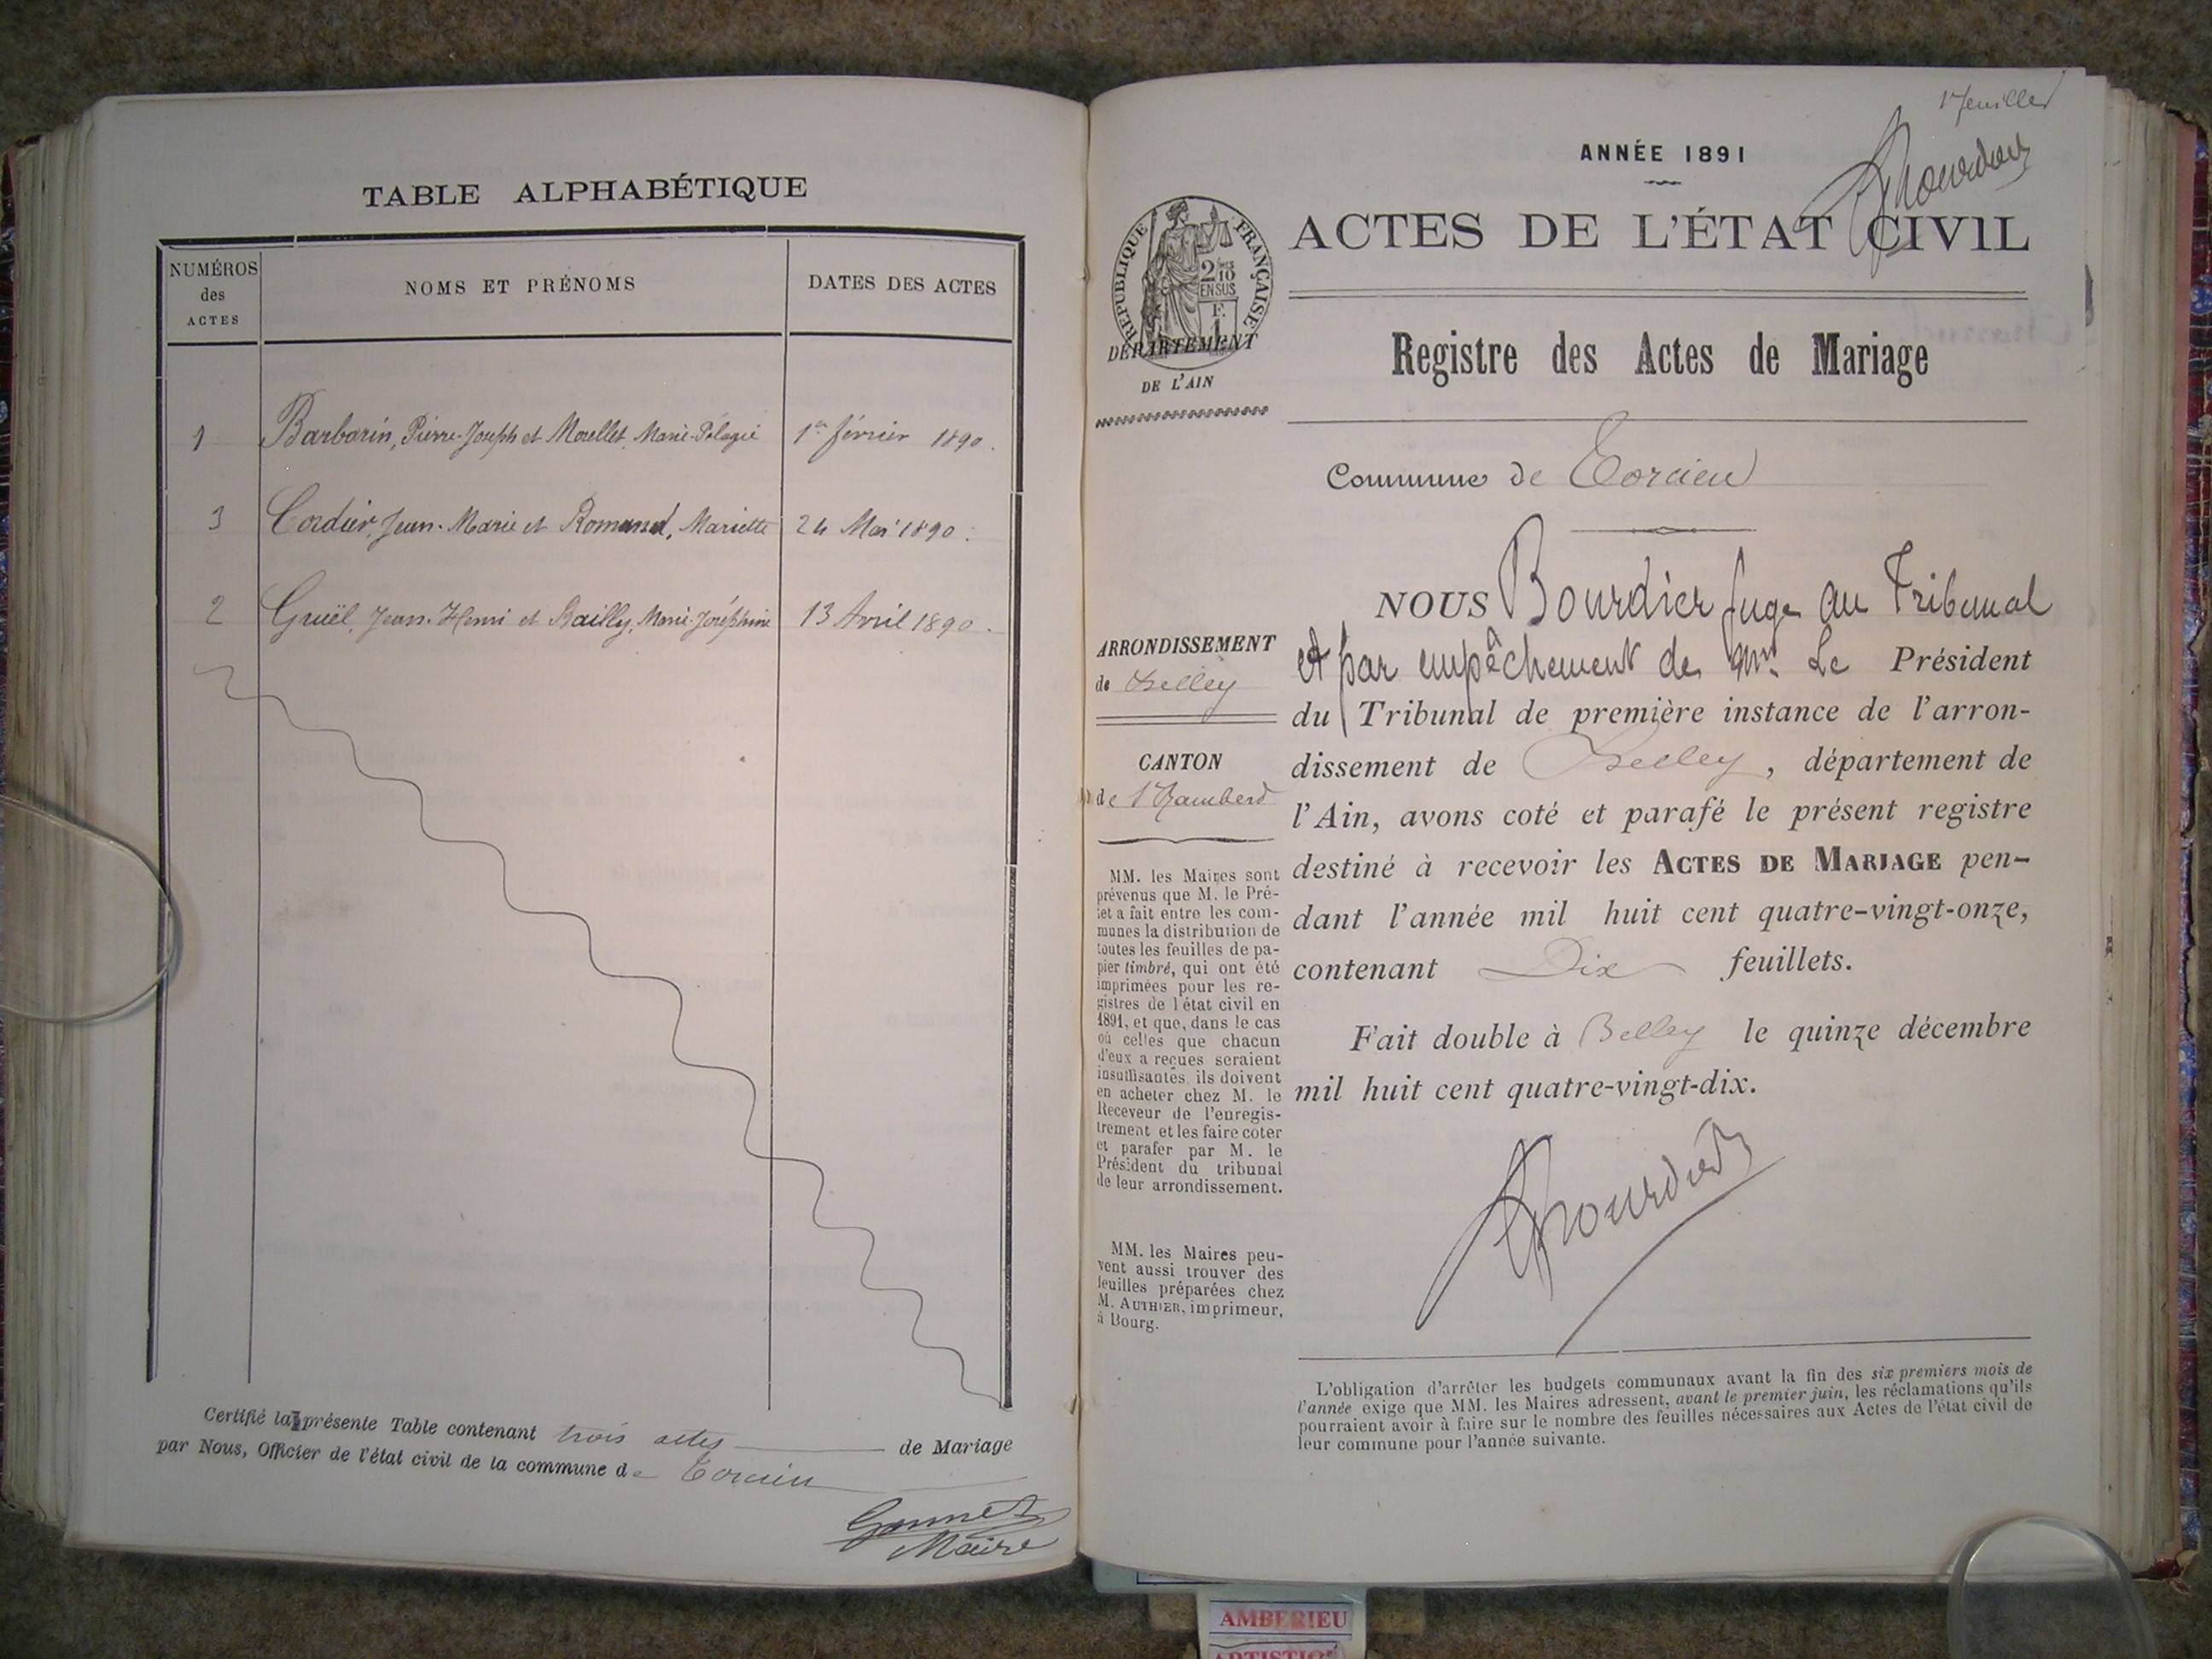 TABLE ALPHABÉTIQUE
NUMÉROS
des
ACTES
NOMS ET PRÉNOMS
DATES DES ACTES
1 Barbarin, Pierre-Joseph et Morellet, Marie-Pélagie 1er février 1890.
3 Cordier, Jean-Marie et Romand, Mariette 24 Mai 1890.
2 Gruël, Jean-Henri et Bailly, Marie-Joséphine 13 Avril 1890.
Certifié la présente Table contenant trois actes de Mariage
par Nous, Officier de l'état civil de la commune de Torcieu
Gonnet
Maire
1r feuillet
ANNÉE 1891
RÉPUBLIQUE FRANÇAISE
2/10 EN SUS
F. 1
DÉPARTEMENT
DE L'AIN
ACTES DE L'ÉTAT CIVIL
Registre des Actes de Mariage
Commune de Torcieu
ARRONDISSEMENT
de Belley
CANTON
de St Rambert
MM. les Maires sont
prévenus que M. le Pré-
fet a fait entre les com-
munes la distribution de
toutes les feuilles de pa-
pier timbré, qui ont été
imprimées pour les re-
gistres de l'état civil en
1891, et que, dans le cas
où celles que chacun
d'eux a reçues seraient
insuffisantes, ils doivent
en acheter chez M. le
Receveur de l'enregis-
trement et les faire coter
et parafer par M. le
Président du tribunal
de leur arrondissement.
MM. les Maires peu-
vent aussi trouver des
feuilles préparées chez
M. AUTHIER, imprimeur,
à Bourg.
NOUS Bourdier Juge au Tribunal
et par empêchement de Mr. Le Président
du Tribunal de première instance de l'arron-
dissement de Belley, département de
l'Ain, avons coté et parafé le présent registre
destiné à recevoir les ACTES DE MARIAGE pen-
dant l'année mil huit cent quatre-vingt-onze,
contenant Dix feuillets.
Fait double à Belley le quinze décembre
mil huit cent quatre-vingt-dix.
Bourdier
L'obligation d'arrêter les budgets communaux avant la fin des six premiers mois de
l'année exige que MM. les Maires adressent, avant le premier juin, les réclamations qu'ils
pourraient avoir à faire sur le nombre des feuilles nécessaires aux Actes de l'état civil de
leur commune pour l'année suivante.
AMBERIEU